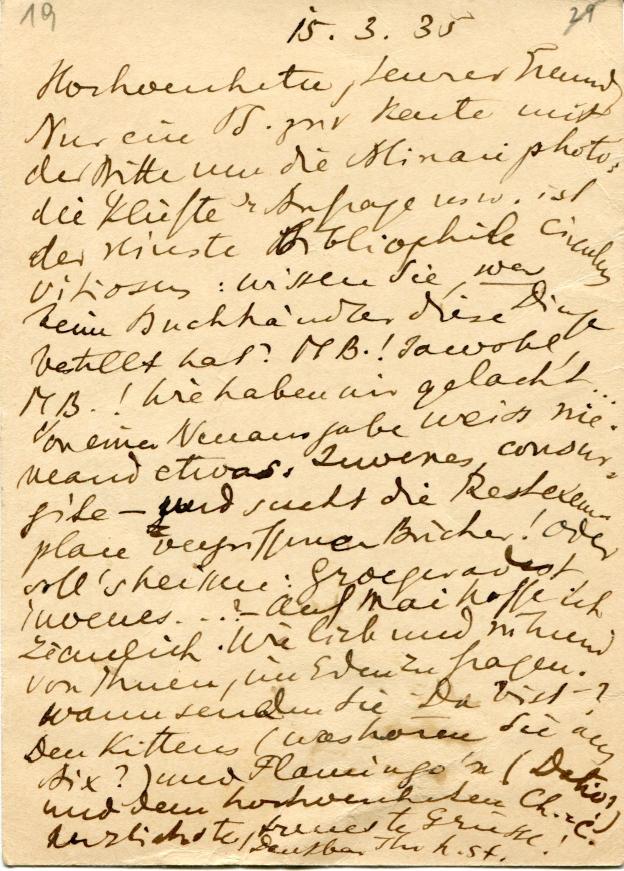 19 29
15. 3. 35
Hochverehrter, teurer Freund,
Nur ein P. zur heute mit
der Bitte um die Alinari photo,
die Klüfte Anfrage usw. ist
der reinste Bibliophile Circulus
vitiosus: wissen Sie, wer
beim Buchhändler diese Dinge
bestellt hat? M B.! Jawohl,
M B.! Wie haben wir gelacht...
Von einer Neuausgabe weiss nie-
mand etwas. Iuvenes, consur-
gite – und sucht die Restexem-
plare vergriffener Bücher! Oder
soll's heissen:
iuvenes...? – Auf Mai hoffe ich
ziemlich. Wie lieb und rührend
von Ihnen, im Eden zu fragen.
Wann senden Sie "Da bist"?
Den Kittens (was hören Sie aus
Aix?) und Flamingo'n (Datio?)
und dem hochverehrten Ch.-C.
herzlichste, treueste Grüsse!
Dankbar Ihr h. St.